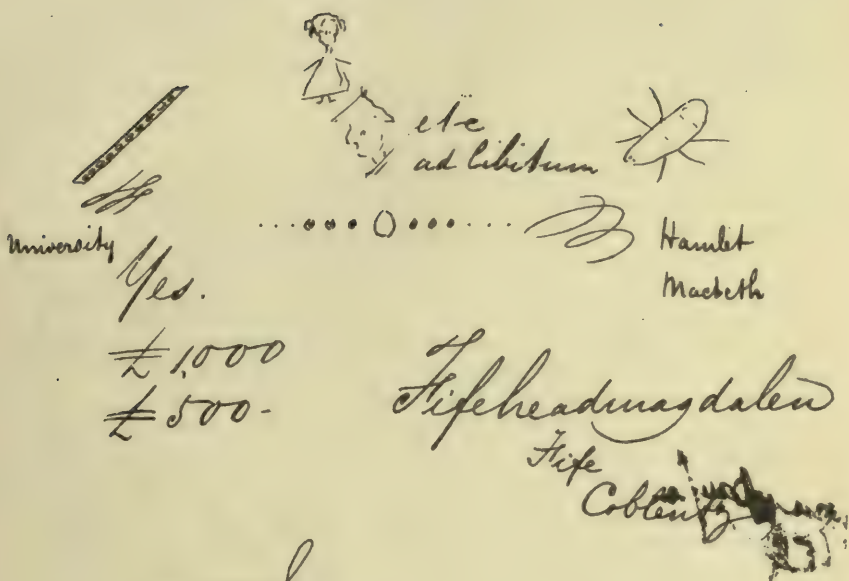 etc
ad libitum
University
Hamlet
Macbeth
Yes.
£ 1,000
£ 500-
Fifeheadmagdalen
Fife
Coblentz